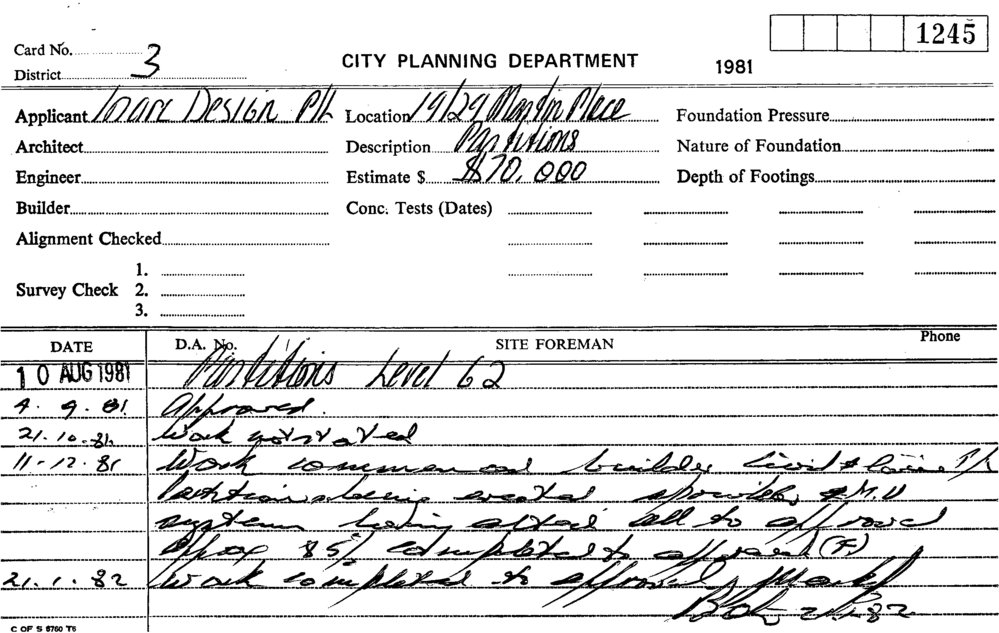 1245
Card No.
3
District
CITY PLANNING DEPARTMENT
1981
Applicant Design P/L
Location 19/29 Martin Place
Foundation Pressure
Architect
Description Partitions
Nature of Foundation
Engineer
Estimate $ $70,000
Depth of Footings
Builder
Conc. Tests (Dates)
Alignment Checked
1.
Survey Check 2.
3.
DATE D.A. No. SITE FOREMAN Phone
10 AUG 1981 Partitions Level 62
4.9.81 Approved.
21.10.81 Work not started
11-12.81 Work commenced builder P/L
Partitions being erected sprinkler & M.V
systems being all to approval
Approx 85% completed to approval
21.1.82 Work completed to approval
C OF S 8760 T6